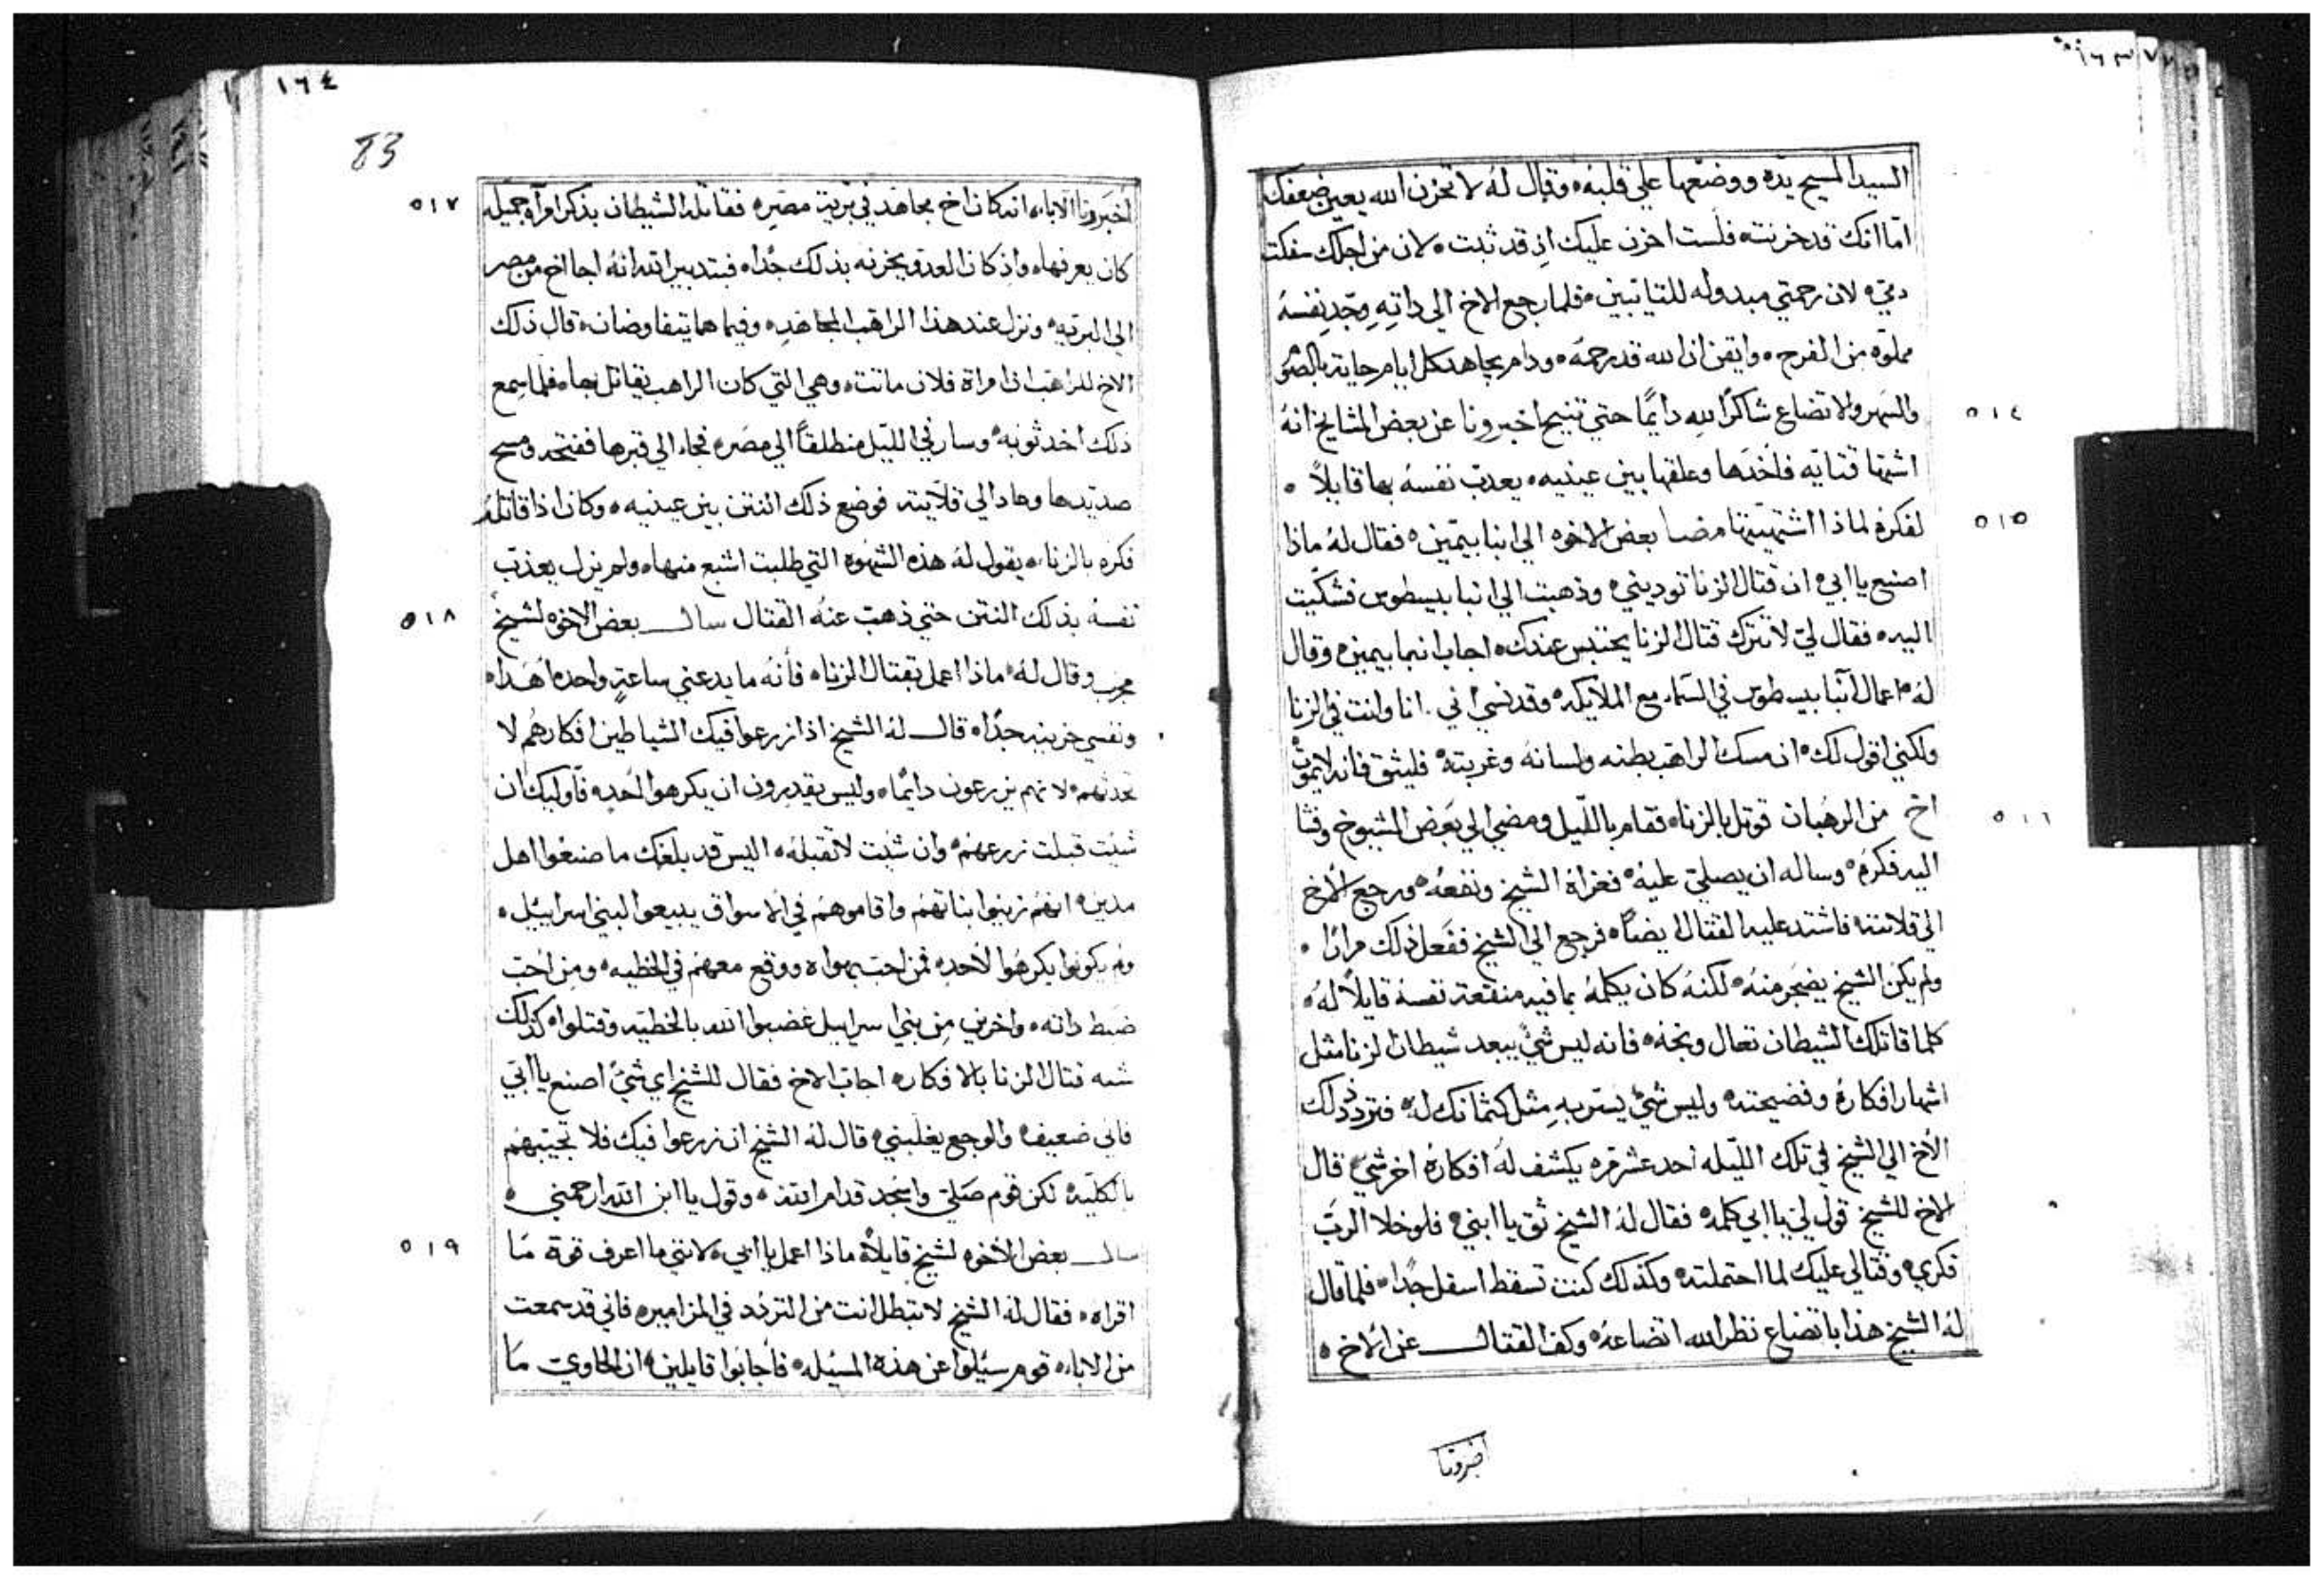 ١٦٣
السيد المسيح يده ووضعها علي قلبه ه وقال له لا تحزن الله يعين ضعفك
اما انك قد حزنته فلست احزن عليك اذ قد ثبت ه لان من اجلك سفكت
دمي ه لان رحمتي مبدوله للتايبين ه فلما رجع الاخ الي داته وجد نفسه
مملوه من الفرح ه وايقن ان الله قد رحمه ه ودام يجاهد كل ايام حياته بالصوم
والسهر والاتضاع شاكرًا لله دايمًا حتي تنيح اخبرونا عن بعض المشايخ انه
٥١٤
اشتها قتايه فاخدها وعلقها بين عينيه ه يعدب نفسه بها قايلاً ه
لفكره لماذا اشتهيتها مضا بعض الاخوه الي انبا بيمين ه فقال له ماذا
٥١٥
اصنع يا ابي ه ان قتال الزنا توديني ه وذهبت الي انبا بيسطوس فشكيت
اليه ه فقال لي لا تترك قتال الزنا يحتبس عندك ه اجاب انبا بيمين ه وقال
له ه اعمال انبا بيسطوس في السماء مع الملايكه ه وقد نسي اني انا وانت في الزنا
ولكني اقول لك ه ان مسك الراهب بطنه ولسانه وغربته ه فليثق فانه لا يموت
اخ من الرهبان قوتل بالزنا ه فقام بالليل ومضي الي بعض الشيوخ وفشا
٥١٦
اليه فكره ه وساله ان يصلي عليه ه فعزاه الشيخ ونفعه ه ورجع الاخ
الي قلايته ه فاشتد عليه القتال ايضًا ه فرجع الي الشيخ ففعل ذلك مرارًا ه
ولم يكن الشيخ يضجر منه ه لكنه كان يكلمه بما فيه منفعة نفسه قايلاً له ه
كلما قاتلك الشيطان تعال وبخه ه فانه ليس شي يبعد شيطان الزنا مثل
اشهار افكاره وفضيحته ه وليس شي يستر به مثل كتمانك له ه فتردد ذلك
الاخ الي الشيخ في تلك الليله احد عشر مره يكشف له افكاره اخر شي ه قال
الاخ للشيخ قول لي يا ابي كلمه ه فقال له الشيخ ثق يا ابني ه فلو خلا الرب
فكري ه وقتالي عليك لما احتملته ه وكذلك كنت تسقط اسفل جدًا ه فلما قال
له الشيخ هذا باتضاع نظر الله اتضاعه ه وكف القتال عن الاخ ه
اخبرونا
١٦٤
83
اخبرونا الاباء ه انه كان اخ مجاهد في برية مصر ه فقاتله الشيطان بذكر امراه جميله
٥١٧
كان يعرفها ه واذ كان العدو يحزنه بذلك جدًا ه فبتدبير الله انه اجا اخ من مصر
الي البريه ه ونزل عند هذا الراهب المجاهد ه وفيما هما يتفاوضان ه قال ذلك
الاخ للراهب ان امراة فلان ماتت ه وهي التي كان الراهب يقاتل بها ه فلما سمع
ذلك اخد ثوبه ه وسار في الليل منطلقًا الي مصر ه فجاء الي قبرها ففتحه ومسح
صديدها وعاد الي قلايته فوضع ذلك النتن بين عينيه ه وكان اذا قاتله
فكره بالزناء ه يقول له هذه الشهوه التي طلبت اشبع منها ه ولم يزل يعذب
نفسه بذلك النتن حتي ذهب عنه القتال سال بعض الاخوه لشيخ
٥١٨
مجرب وقال له ه ماذا اعمل بقتال الزنا ه فأنه ما يدعني ساعة واحده اهدا ه
ونفسي حزينه جدًا ه قال له الشيخ اذا زرعوا فيك الشياطين افكارهم لا
تحدثهم ه لانهم يزرعون دايمًا ه وليس يقدرون ان يكرهوا لحد ه فاوليك ان
شيت قبلت زرعهم ه وان شيت لا تقبله ه اليس قد بلغك ما صنعوا اهل
مدين ه انهم زينوا بناتهم واقاموهم في الاسواق يبيعوا لبني اسراييل ه
ولم يكونوا يكرهوا لأحد ه فمن احب يهواه ووقع معهم في الخطيه ه ومن احب
ضبط داته ه واخرين من بني اسراييل غضبوا الله بالخطيه وقتلوا ه كذلك
شبه قتال الزنا بالافكار ه اجاب الاخ فقال للشيخ اي شي اصنع يا ابي
فاني ضعيف ه والوجع يغلبني ه قال له الشيخ ان زرعوا فيك فلا تجيبهم
بالكليه ه لكن قوم صلي واسجد قدام الله ه وقول يا ابن الله ارحمني ه
سال بعض الأخوه لشيخ قايلاً ه ماذا اعمل يا ابي ه لانني ما اعرف قوة ما
٥١٩
اقراه ه فقال له الشيخ لا تبطل انت من التردد في المزامير ه فاني قد سمعت
من الاباء ه قوم سئلوا عن هذه المسئله ه فأجابوا قايلين ه ان الحاوي ما